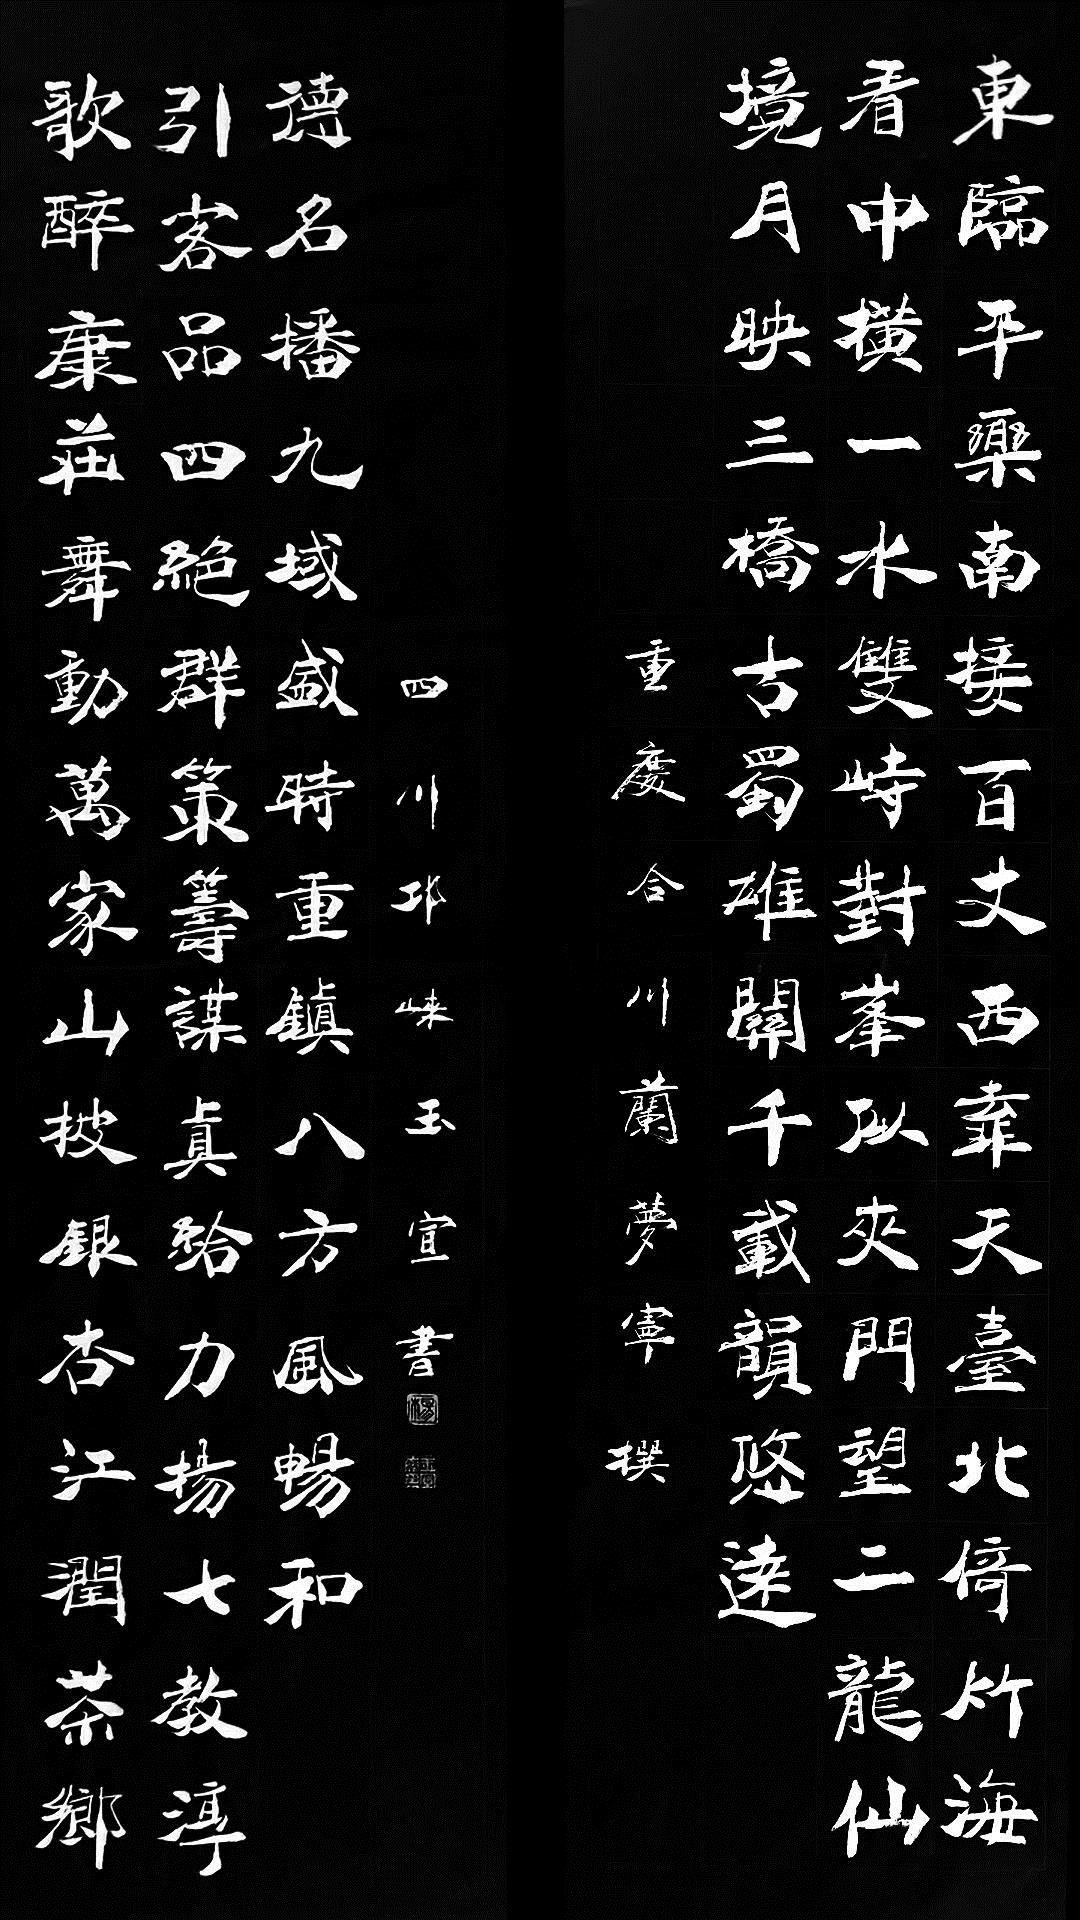 東臨平樂南接百丈西靠天臺北倚竹海
看中橫一水雙峙對峯似夾門望二龍仙
境月映三橋古蜀雄關千載韻悠遠
重慶合川蘭夢寧撰
歌醉康莊舞動萬家山披銀杏江潤茶鄉
引客品四絕群策籌謀真給力揚七教淳
德名播九域盛時重鎮八方風暢和
四川邛崍玉宣書